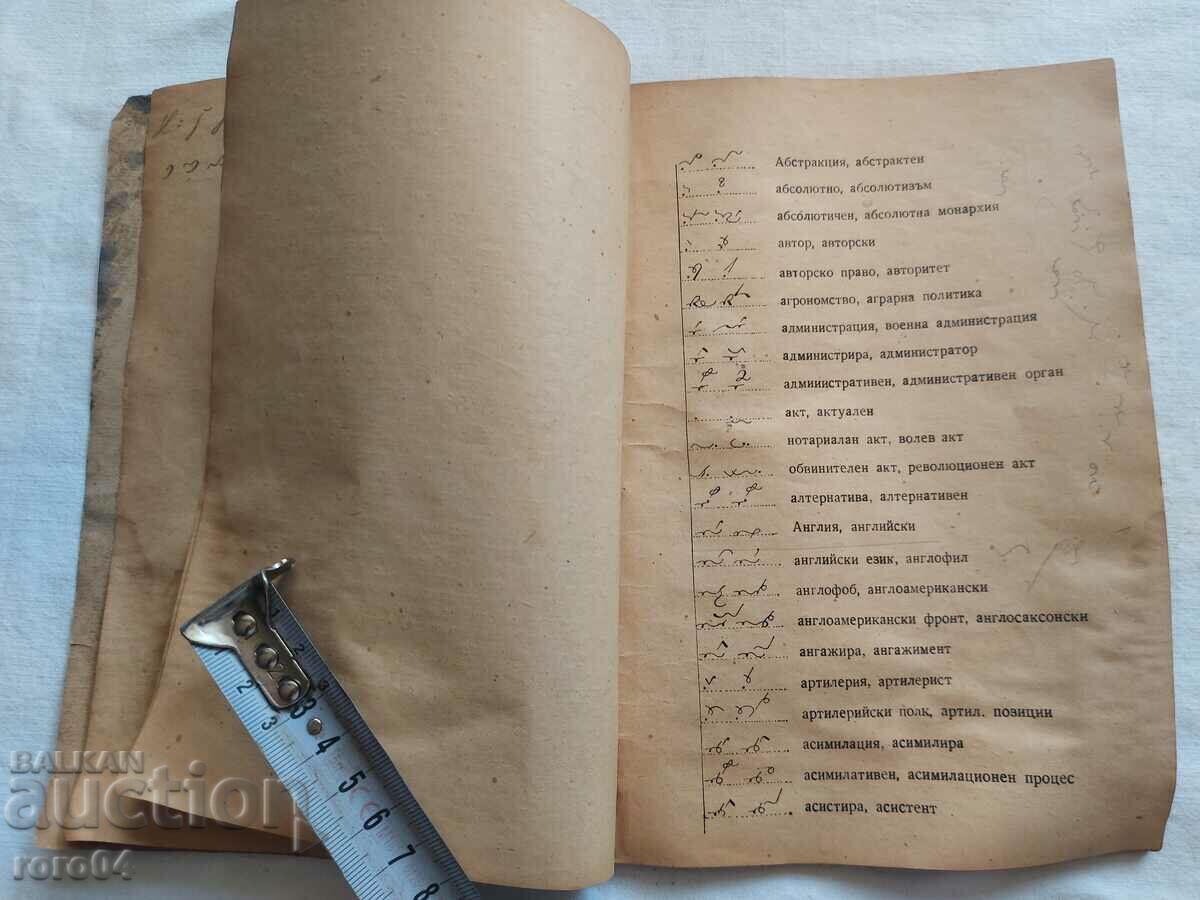 Абстракция, абстрактен
абсолютно, абсолютизъм
абсолютичен, абсолютна монархия
автор, авторски
авторско право, авторитет
агрономство, аграрна политика
администрация, военна администрация
администрира, администратор
административен, административен орган
акт, актуален
нотариален акт, волев акт
обвинителен акт, революционен акт
алтернатива, алтернативен
Англия, английски
английски език, англофил
англофоб, англоамерикански
англоамерикански фронт, англосаксонски
ангажира, ангажимент
артилерия, артилерист
артилерийски полк, артил. позиции
асимилация, асимилира
асимилативен, асимилационен процес
асистира, асистент
1 2 3 4 5 6 7 8
2 3
BALKAN
auction
roro04